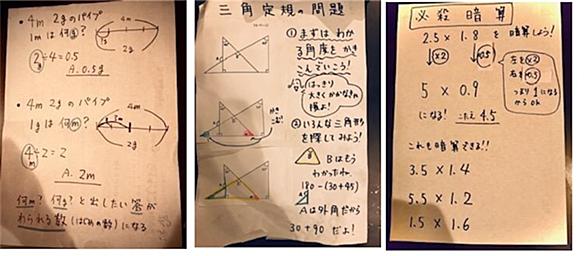 ・4m 2gのパイプ
1mは何g?
4m
2g
2÷4=0.5
A.0.5g
・4m 2gのパイプ
1gは何m?
4m
2g
4÷2=2
A.2m
何m?何g?と出したい答が
わられる数(はじめの数)になる
三角定規の問題
①まずはわか
る角度をかき
こんでいこう!
はっきり
大きくかかなきゃ
損よ!
②いろんな三角形
を探してみよう!
Bはもう
わかったね
180-(30+45)
Aは外角だから
30+90だよ!
必殺暗算
2.5×1.8を暗算しよう!
×2
×0.5
左を×2
右を×0.5
つまり1になる
からok
5×0.9
になる! こたえ4.5
これも暗算できる!!
3.5×1.4
5.5×1.2
1.5×1.6